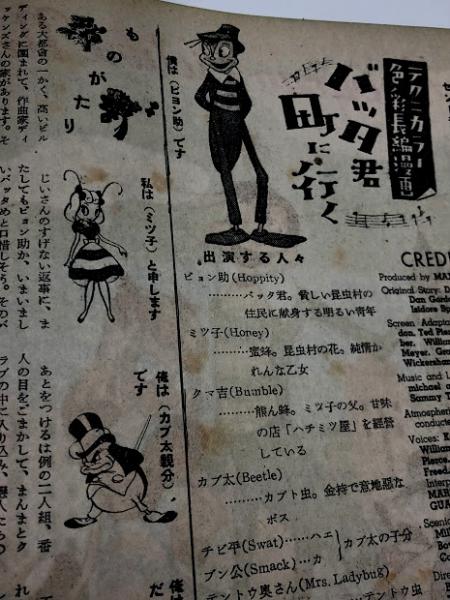 テクニカラー
色彩長編漫画
バッタ君
町に行く
僕は(ピョン助)です
出演する人々
ピョン助(Hoppity)
………バッタ君。貧しい昆虫村の
住民に献身する明るい青年
ミツ子(Honey)
………蜜蜂。昆虫村の花。純情か
れんな乙女
クマ吉(Bumble)
………熊ん蜂。ミツ子の父。甘味
の店「ハチミツ屋」を経営
している
カブ太(Beetle)
………カブト虫。金持で意地悪な
ボス
チビ平(Swat)……ハエ
ブン公(Smack)…カ
カブ太の子分
テントウ奥さん(Mrs. Ladybug)
テントウ虫
CREDI
Produced by MA
Original Story: D
Dan Gord
Isidore Sp
Screen Adapta
dan. Ted Pie
ber. William
Meyer. Gra
Wickersham
Music and L
michael a
Sammy T
Atmospheri
conducte
Voices: K
William
Pierce.
Freed.
Interp
MAR
GUA
Scenic
Mil
Bo
Co
Dire
ものがたり
ある大都会の一かく、高いビル
ディングに囲まれて、作曲家ディ
ッケンズさんの家があります。そ
私は(ミツ子)と申します
じいさんのすげない返事に、ま
たしてもピョン助か、いまいまし
いバッタめと口惜しそう。そのバ
俺は(カブ太親分)
です
あとをつけるは例の二人組、番
人の目をごまかして、まんまとク
ラブの中に入り込み、
俺は
だ